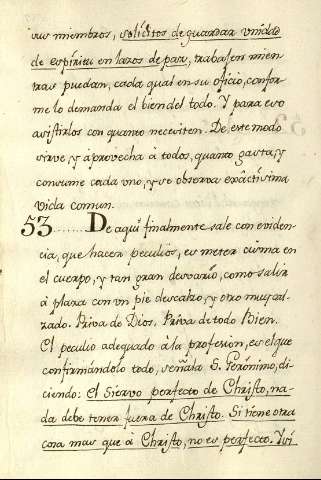 sus miembros, solícitos de guardar vnidad
de espiritu en lazos de paz, trabajen mien
tras puedan, cada qual en su oficio, confor
me lo demanda el bien del todo. Y para eso
asistirlos con quanto necesiten. De este modo
sirve, y aprovecha à todos, quanto gasta, y
consume cada vno, y se observa exâctisima
vida comun.
53........ De aquí finalmente sale con eviden
cia, que hacer peculios, es meter cisma en
el cuerpo, y tan gran desvario, como salir
à plaza con vn pie descalzo, y otro muy cal-
zado. Priva de Dios. Priva de todo Bien.
El peculio adequado à la profesion, es el que
confirmandolo todo, señala S. Gerónimo, di
ciendo: el Siervo perfecto de Christo, na-
da debe tener fuera de Christo. Si tiene otra
cosa mas que à Christo, no es perfecto. Y si